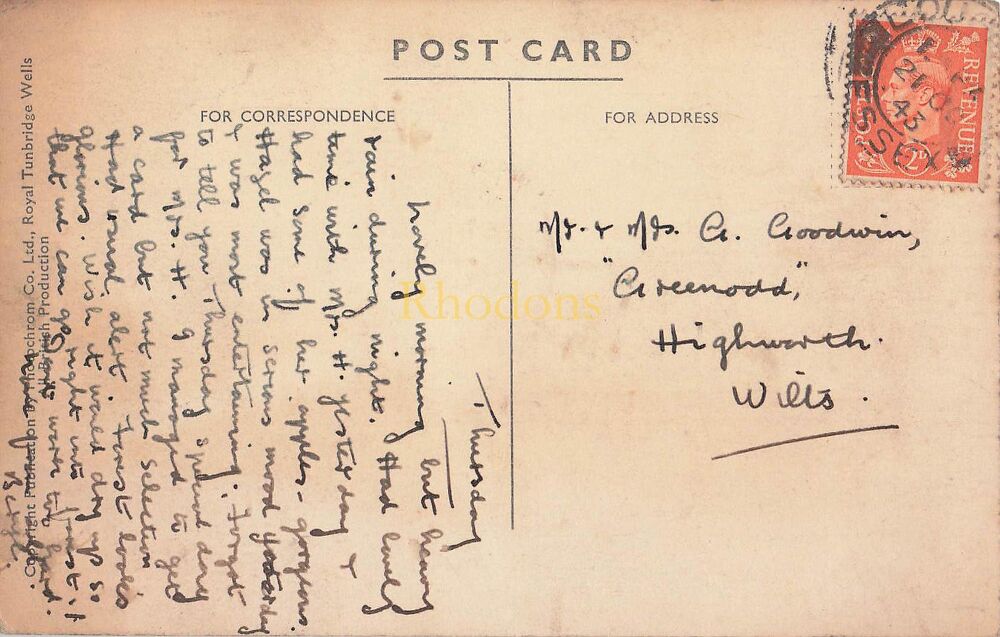 POST CARD
FOR CORRESPONDENCE
FOR ADDRESS
Thursday
Lovely morning but heavy
rain during night. Had lovely
time with Mrs. H. yesterday &
had some of her apples - gorgeous.
Hazel was in serious mood yesterday
& was most entertaining. Forgot
to tell you Thursday special day
for Mrs. H. I managed to get
a card but not much selection
Had usual alert. Forest looks
glorious. Wish it would dry up so
that we can go right into forest it
Beryl.
Mr. & Mrs. G. Goodwin,
"Greenodd",
Highworth.
Wilts.
REVENUE
21 OC
43
ESSEX
Copyright Publication by Photochrom Co. Ltd., Royal Tunbridge Wells
All-British Production
Rhodons